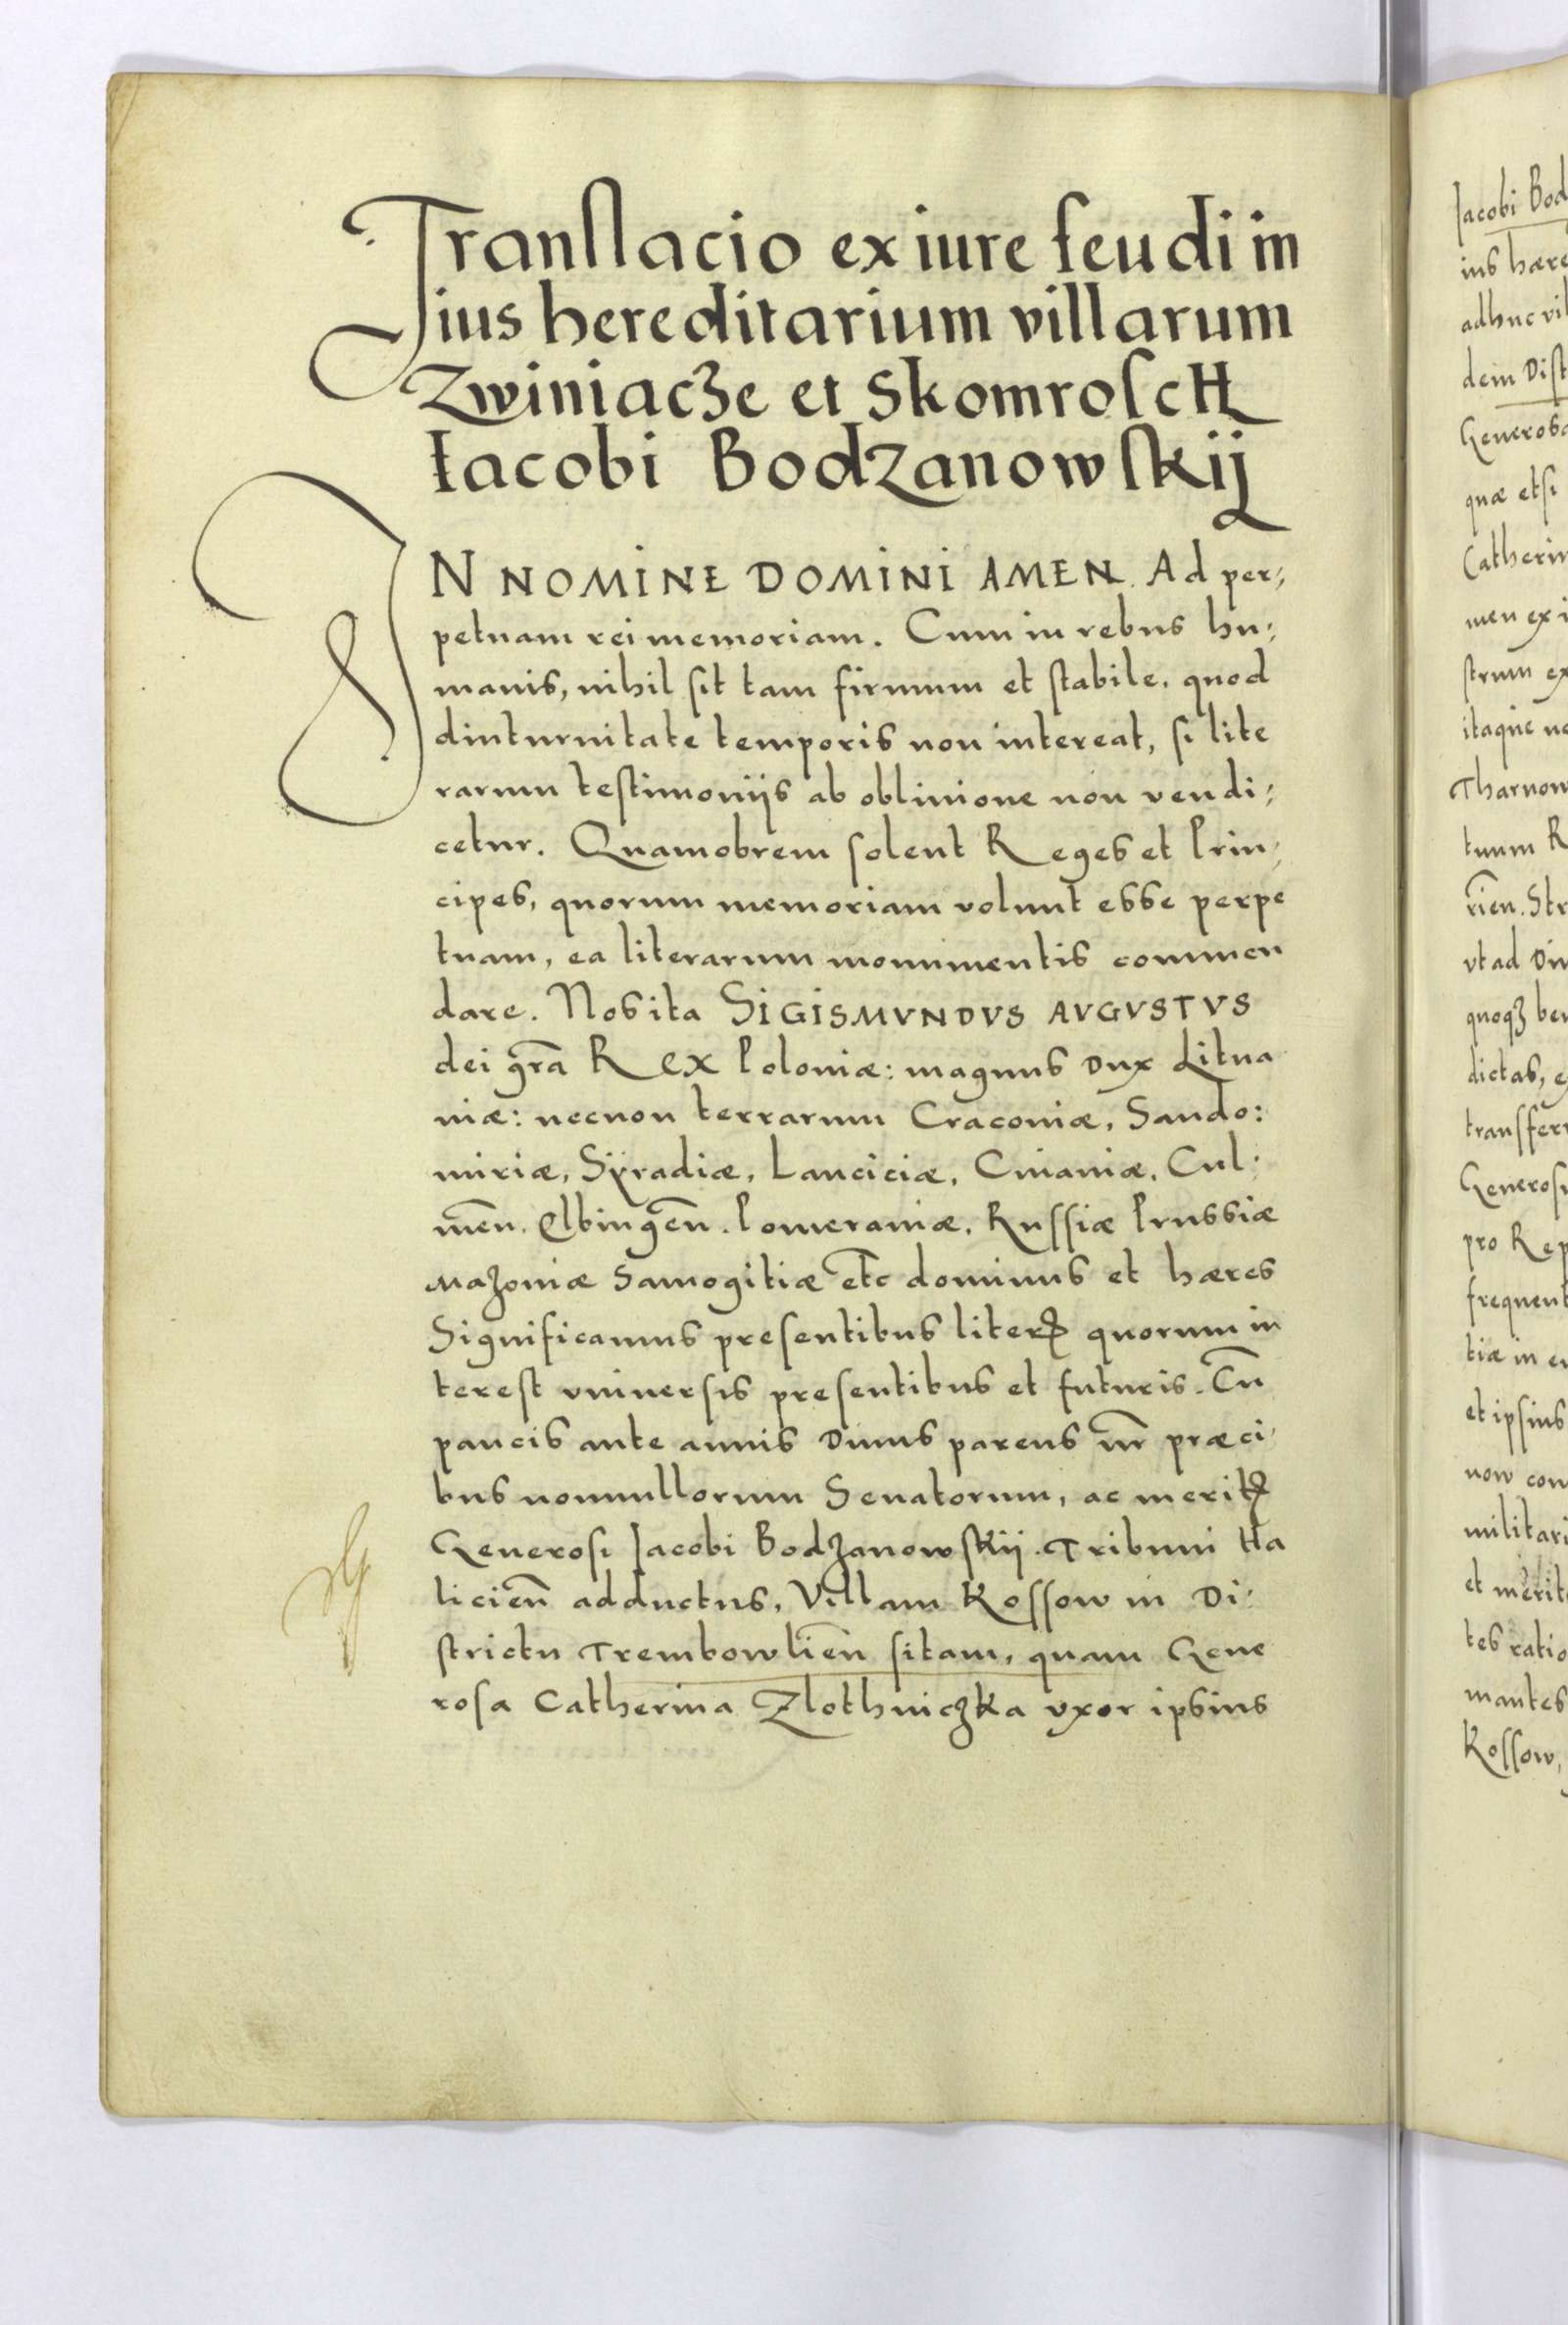 Translacio ex iure feudi in
ius hereditarium villarum
Zwiniacze et Skomrosch
Iacobi Bodzanowskij
IN NOMINE DOMINI AMEN. Ad per,
petuam rei memoriam. Cum in rebus hu,
manis, nihil sit tam firmum et stabile, quod
diuturnitate temporis non intereat, si lite
rarum testimonijs ab obliuione non vendi,
cetur. Quamobrem solent Reges et Prin,
cipes, quorum memoriam volunt esse perpe
tuam, ea literarum monumentis commen
dare. Nos ita SIGISMVNDVS AVGVSTVS
dei gr̃a Rex Poloniæ: magnus Dux Litua
niæ: necnon terrarum Cracoviæ, Sando:
miriæ, Syradiæ, Lanciciæ, Cuiauiæ, Cul:
meñ. Elbingeñ. Pomeraniæ, Russiæ Prussiæ
Mazoviæ Samogitiæ etc dominus et hæres
Significamus presentibus literꝭ quorum in
terest vniuersis presentibus et futuris. Cũ
paucis ante annis Diuus parens nr̃ præci,
bus nonnullorum Senatorum, ac meritꝭ
Generosi Jacobi Bodzanowskij. Tribuni Ha
licieñ adductus, Villam Kossow in Di,
strictu Trembowlieñ sitam, quam Gene
rosa Catherina Zlothniczka vxor ipsius
Jacobi Bod
ius hære
adhuc vil
dem Dist
Generosa
quæ etsi
Catherin
men ex i
strum ex
itaque
Tharnow
tuum R
rieñ. Str
vt ad Diu
quoqȝ ben
dictas,
transferr
Generosi
pro Rep
frequent
tiæ in
et ipsius
now con
militari
et merit
tes ratio
mantes
Kossow,